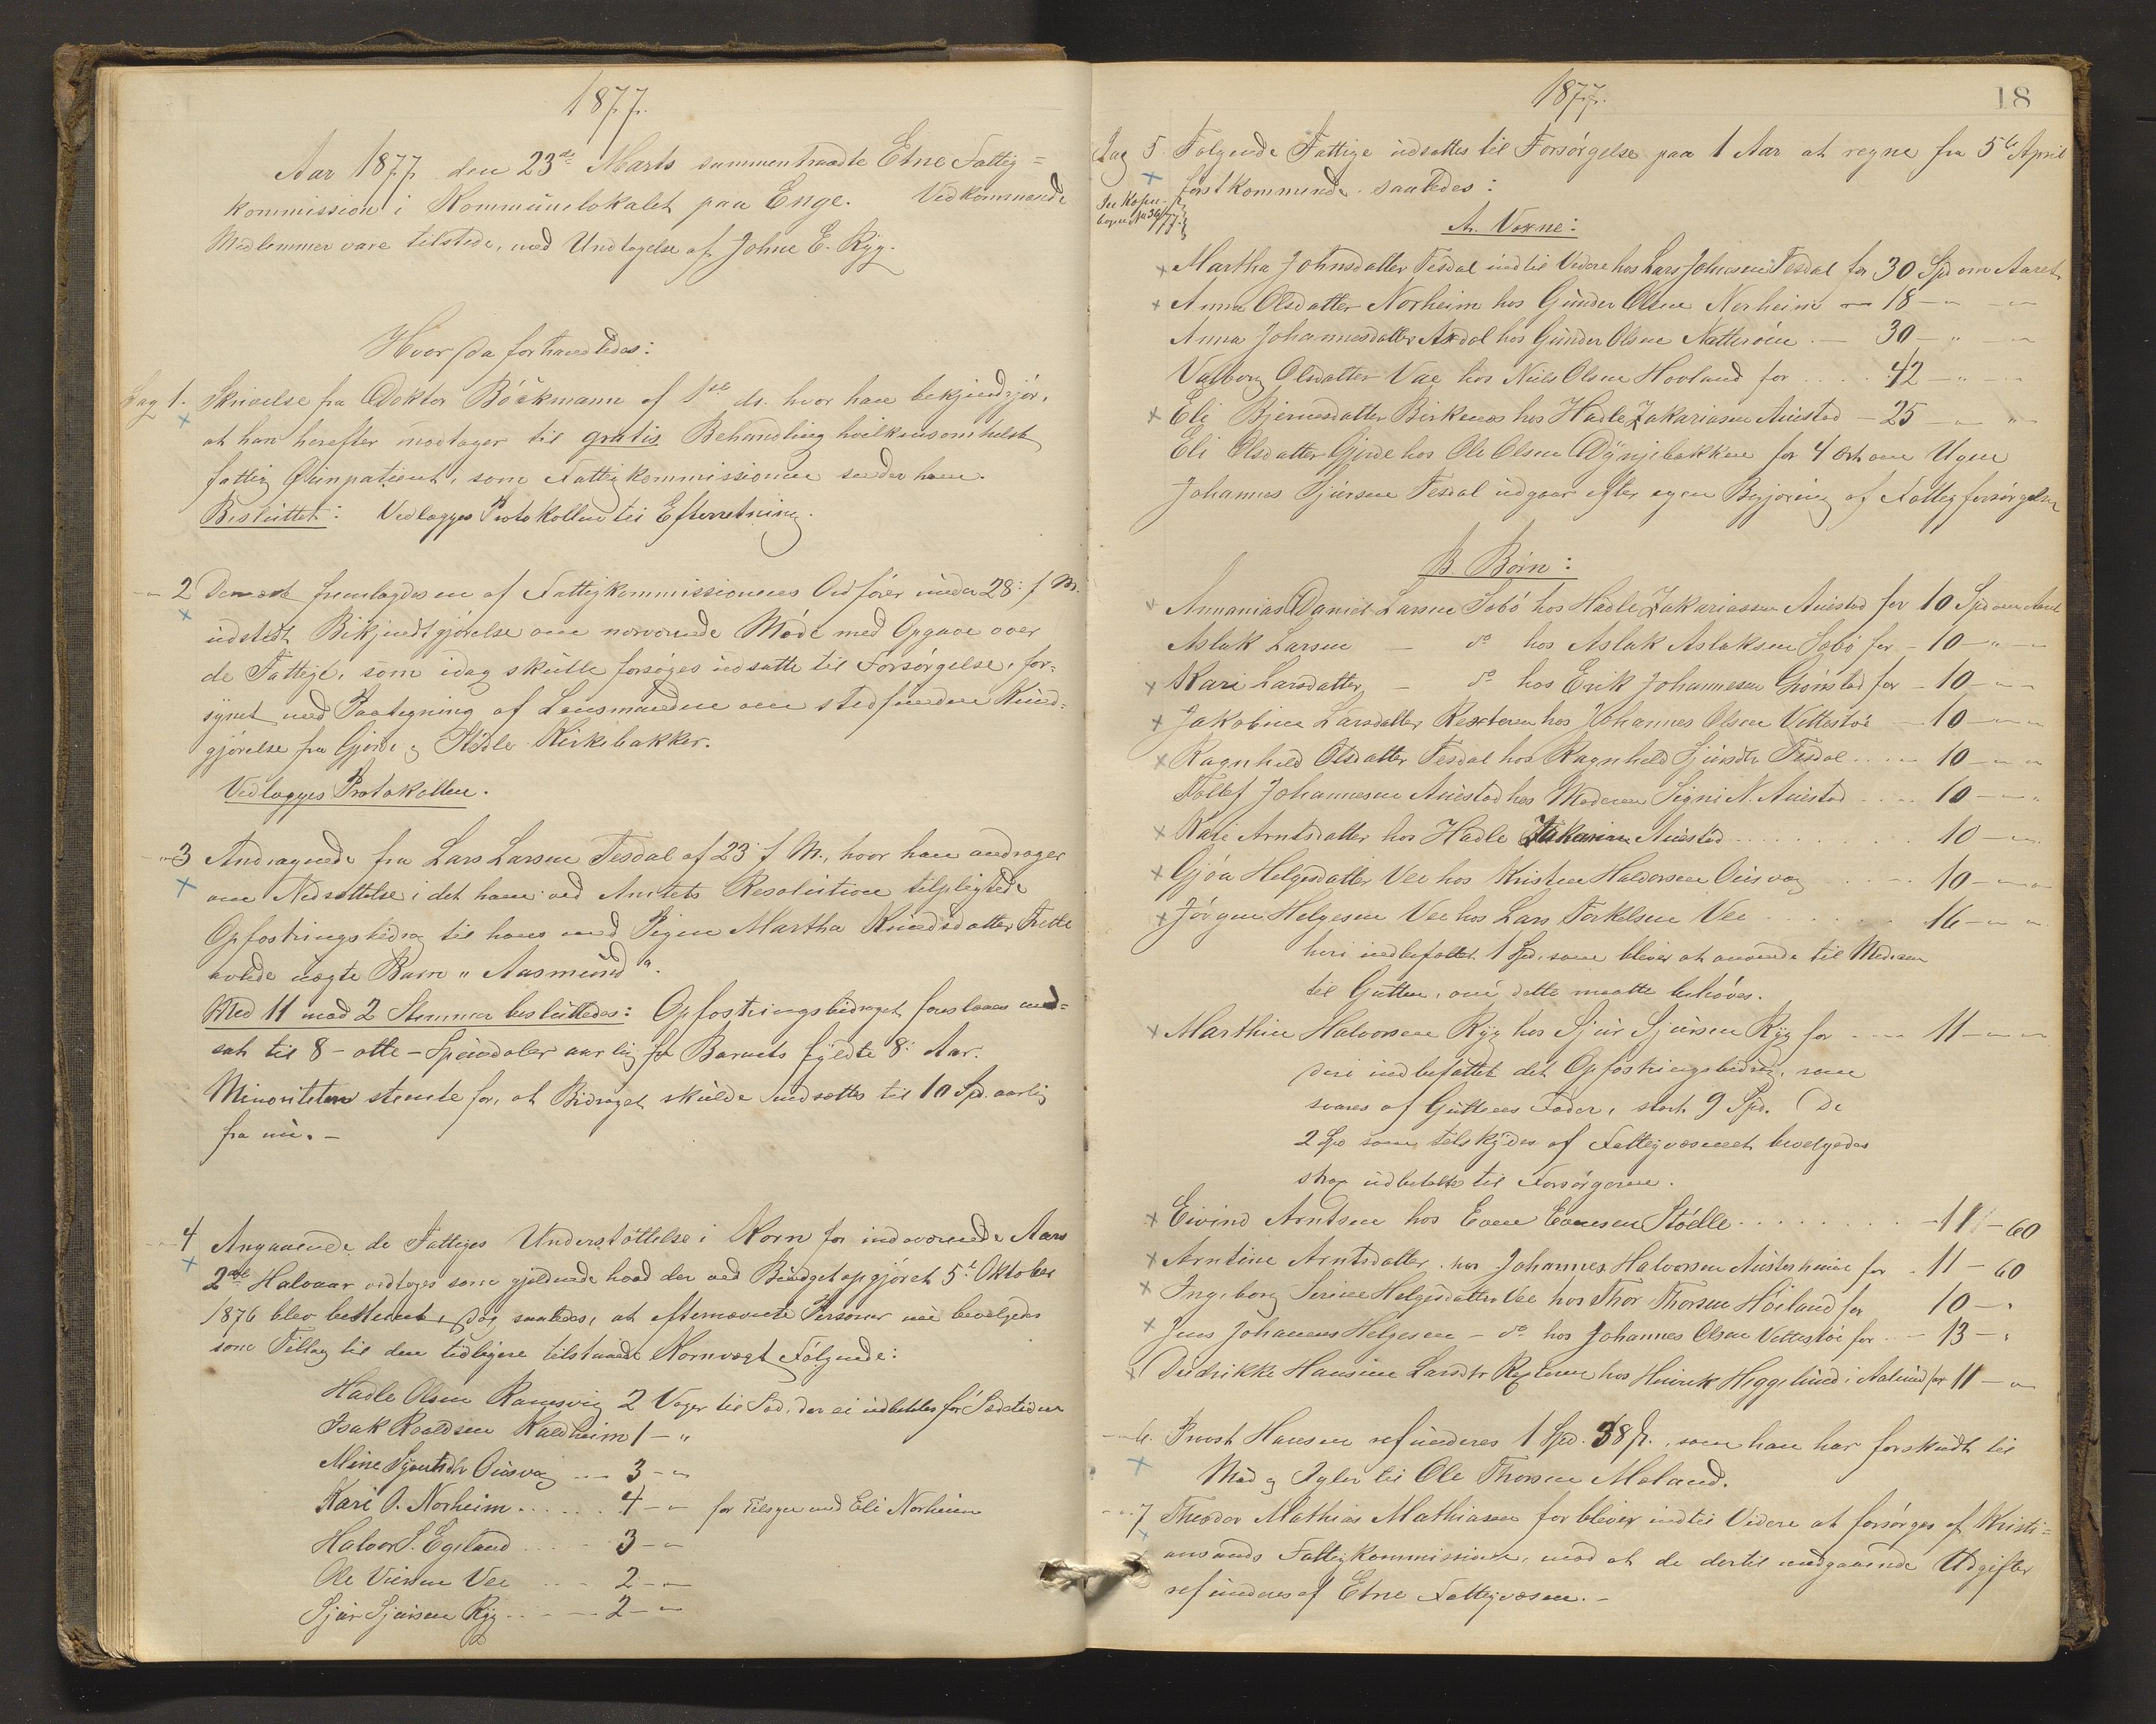 1877.
Aar 1877 den 23de Marts sammentraadte Etne Fattig=
kommission i Kommunelokalet paa Enge. Vedkommende
Medlemmer vare tilstede, med Undtagelse af Johne E. Ryg.
Hvor da forhandledes:
Sag 1. Skrivelse fra Doktor Böckmann af 1ste ds. hvor han bekjendtgjör,
at han herefter modtager til gratis Behandling hvilkensomhelst
fattig Öienpatient, som Fattigkommissionen sender ham.
Besluttet: Vedlægges Protokollen til Efterretning.
- 2 Dernæst fremlagdes en af Fattigkommissionens Ordförer under 28. f M.
udstedt Bekjendtgjörelse om nærværende Möde med Opgave over
de Fattige, som idag skulle forsöges udsatte til Forsörgelse, for=
synet med Paategning af Lensmanden om stedfunden Kund=
gjörelse fra Gjerde og Stödle Kirkebakker.
Vedlægges Protokollen.
- 3 Andragende fra Lars Larsen Tesdal af 23 f M., hvor han andrager
om Nedsættelse i det ham ved Amtets Resolution tilpligtede
Opfostringsbidrag til hans med Pigen Martha Knudsdatter Frette
avlede uægte Barn "Aasmund".
Med 11 mod 2 Stemmer besluttedes: Opfostringsbidraget foreslaaes ned=
sat til 8 - otte - Speciedaler aarlig fra Barnets fyldte 8: Aar.
Minoriteten stemte for, at Bidraget skulde nedsættes til 10 Spd. aarlig
fra nu. -
- 4 Angaaende de Fattiges Understöttelse i Korn for indeværende Aars
2det Halvaar vedtoges som gjeldende hvad der ved Budgetopgjöret 5te Oktober
1876 blev bestemt, dog saaledes, at efternævnte Personer nu bevilgedes
som Tillæg til den tidligere tilstaaede Kornvægt Fölgende:
Hadle Olsen Ramsvig 2 Voger til Sæd, der ei udbetales för Sædetiden
Isak Roaldsen Kaldheim 1 - "
Mine Sjoartsdtr Öiesvog .... 3 - "
Kari O. Norheim ...... 4 - " for Tilsyn med Eli Norheim
Halvor S. Egeland ..... 3 - "
Ole Viersen Vee .... 2 - "
Sjur Sjursen Ryg ..... 2 - "
1877.
18
Sag 5. Fölgende Fattige udsattes til Forsörgelse paa 1 Aar at regne fra 5te April
förstkommende saaledes:
Se Kopie-
bogen No 34/77.
A. Voxne:
Martha Johnsdatter Tesdal indtil Videre hos Lars Johnsen Tesdal for 30 Spd om Aaret
Anna Olsdatter Norheim hos Gunder Olsen Norheim - 18 - " -
Anna Johannesdatter Axdal hos Gunder Olsen Netteröen - 30 - " -
Valborg Olsdatter Vae hos Niels Olsen Hovland for .... 42 - " -
Eli Bjernesdatter Birkenes hos Hadle Zakariasen Auestad - 25 - " -
Eli Olsdatter Gjerde hos Ole Olsen Dynjebakken for 4 Ort om Ugen
Johannes Sjursen Tesdal udgaar efter egen Begjæring af Fattigforsörgelsen
B. Börn:
Annanias Daniel Larsen Söbö hos Hadle Zakariassen Auestad for 10 Spd om Aaret
Aslak Larsen - do hos Aslak Aslaksen Söbö for - 10 - " -
Kari Larsdatter - do hos Erik Johannesen Grönstad for - 10 - -
Jakobine Larsdatter Rexteren hos Johannes Olsen Vettestöe - 10 - -
Ragnhild Olsdatter Tesdal hos Ragnhild Sjursdtr Tesdal .... 10 - -
Tollef Johannesen Auestad hos Moderen Signi N. Auestad .... 10 - -
Kari Arntsdatter hos Hadle Zakariasen Auestad ........ 10 - -
Gjöa Helgesdatter Vee hos Kristen Halvorsen Öiesvog .... 10 - -
Jörgen Helgesen Vee hos Lars Torkelsen Vee ...... 16 - -
heri indbefattet 1 Spd, som bliver at anvende til Medisin
til Gutten, om dette maatte behöves.
Marthin Halvorsen Ryg hos Sjur Sjursen Ryg for .... 11 - -
deri indbefattet det Opfostringsbidrag, som
svares af Guttens Fader, stort 9 Spd. De
2 Spd som tilskydes af Fattigvæsenet bevilgedes
strax udbetalte til Forsörgeren.
Eivind Arntsen hos Even Evensen Stödle ........ - 11 - 60
Arntine Arntsdatter hos Johannes Halvorsen Austerheim for . 11 - 60
Ingeborg Serine Helgesdatter Vee hos Thor Thorsen Höiland for 10 - "
Jens Johannes Helgesen - do hos Johannes Olsen Vettestöe for - 13 - "
Didrikke Hansine Larsdtr Rexteren hos Hinrik Heggelund i Aalund for 11 - "
- 6. Provst Hansen refunderes 1 Spd. 38 s., som han har forskudt til
Mad og Igler til Ole Thorsen Moland.
- 7 Theodor Mathias Mathiasen forbliver indtil Videre at forsörges af Kristi=
ansunds Fattigkommission, mod at de dertil medgaaende Udgifter
refunderes af Etne Fattigvæsen. -